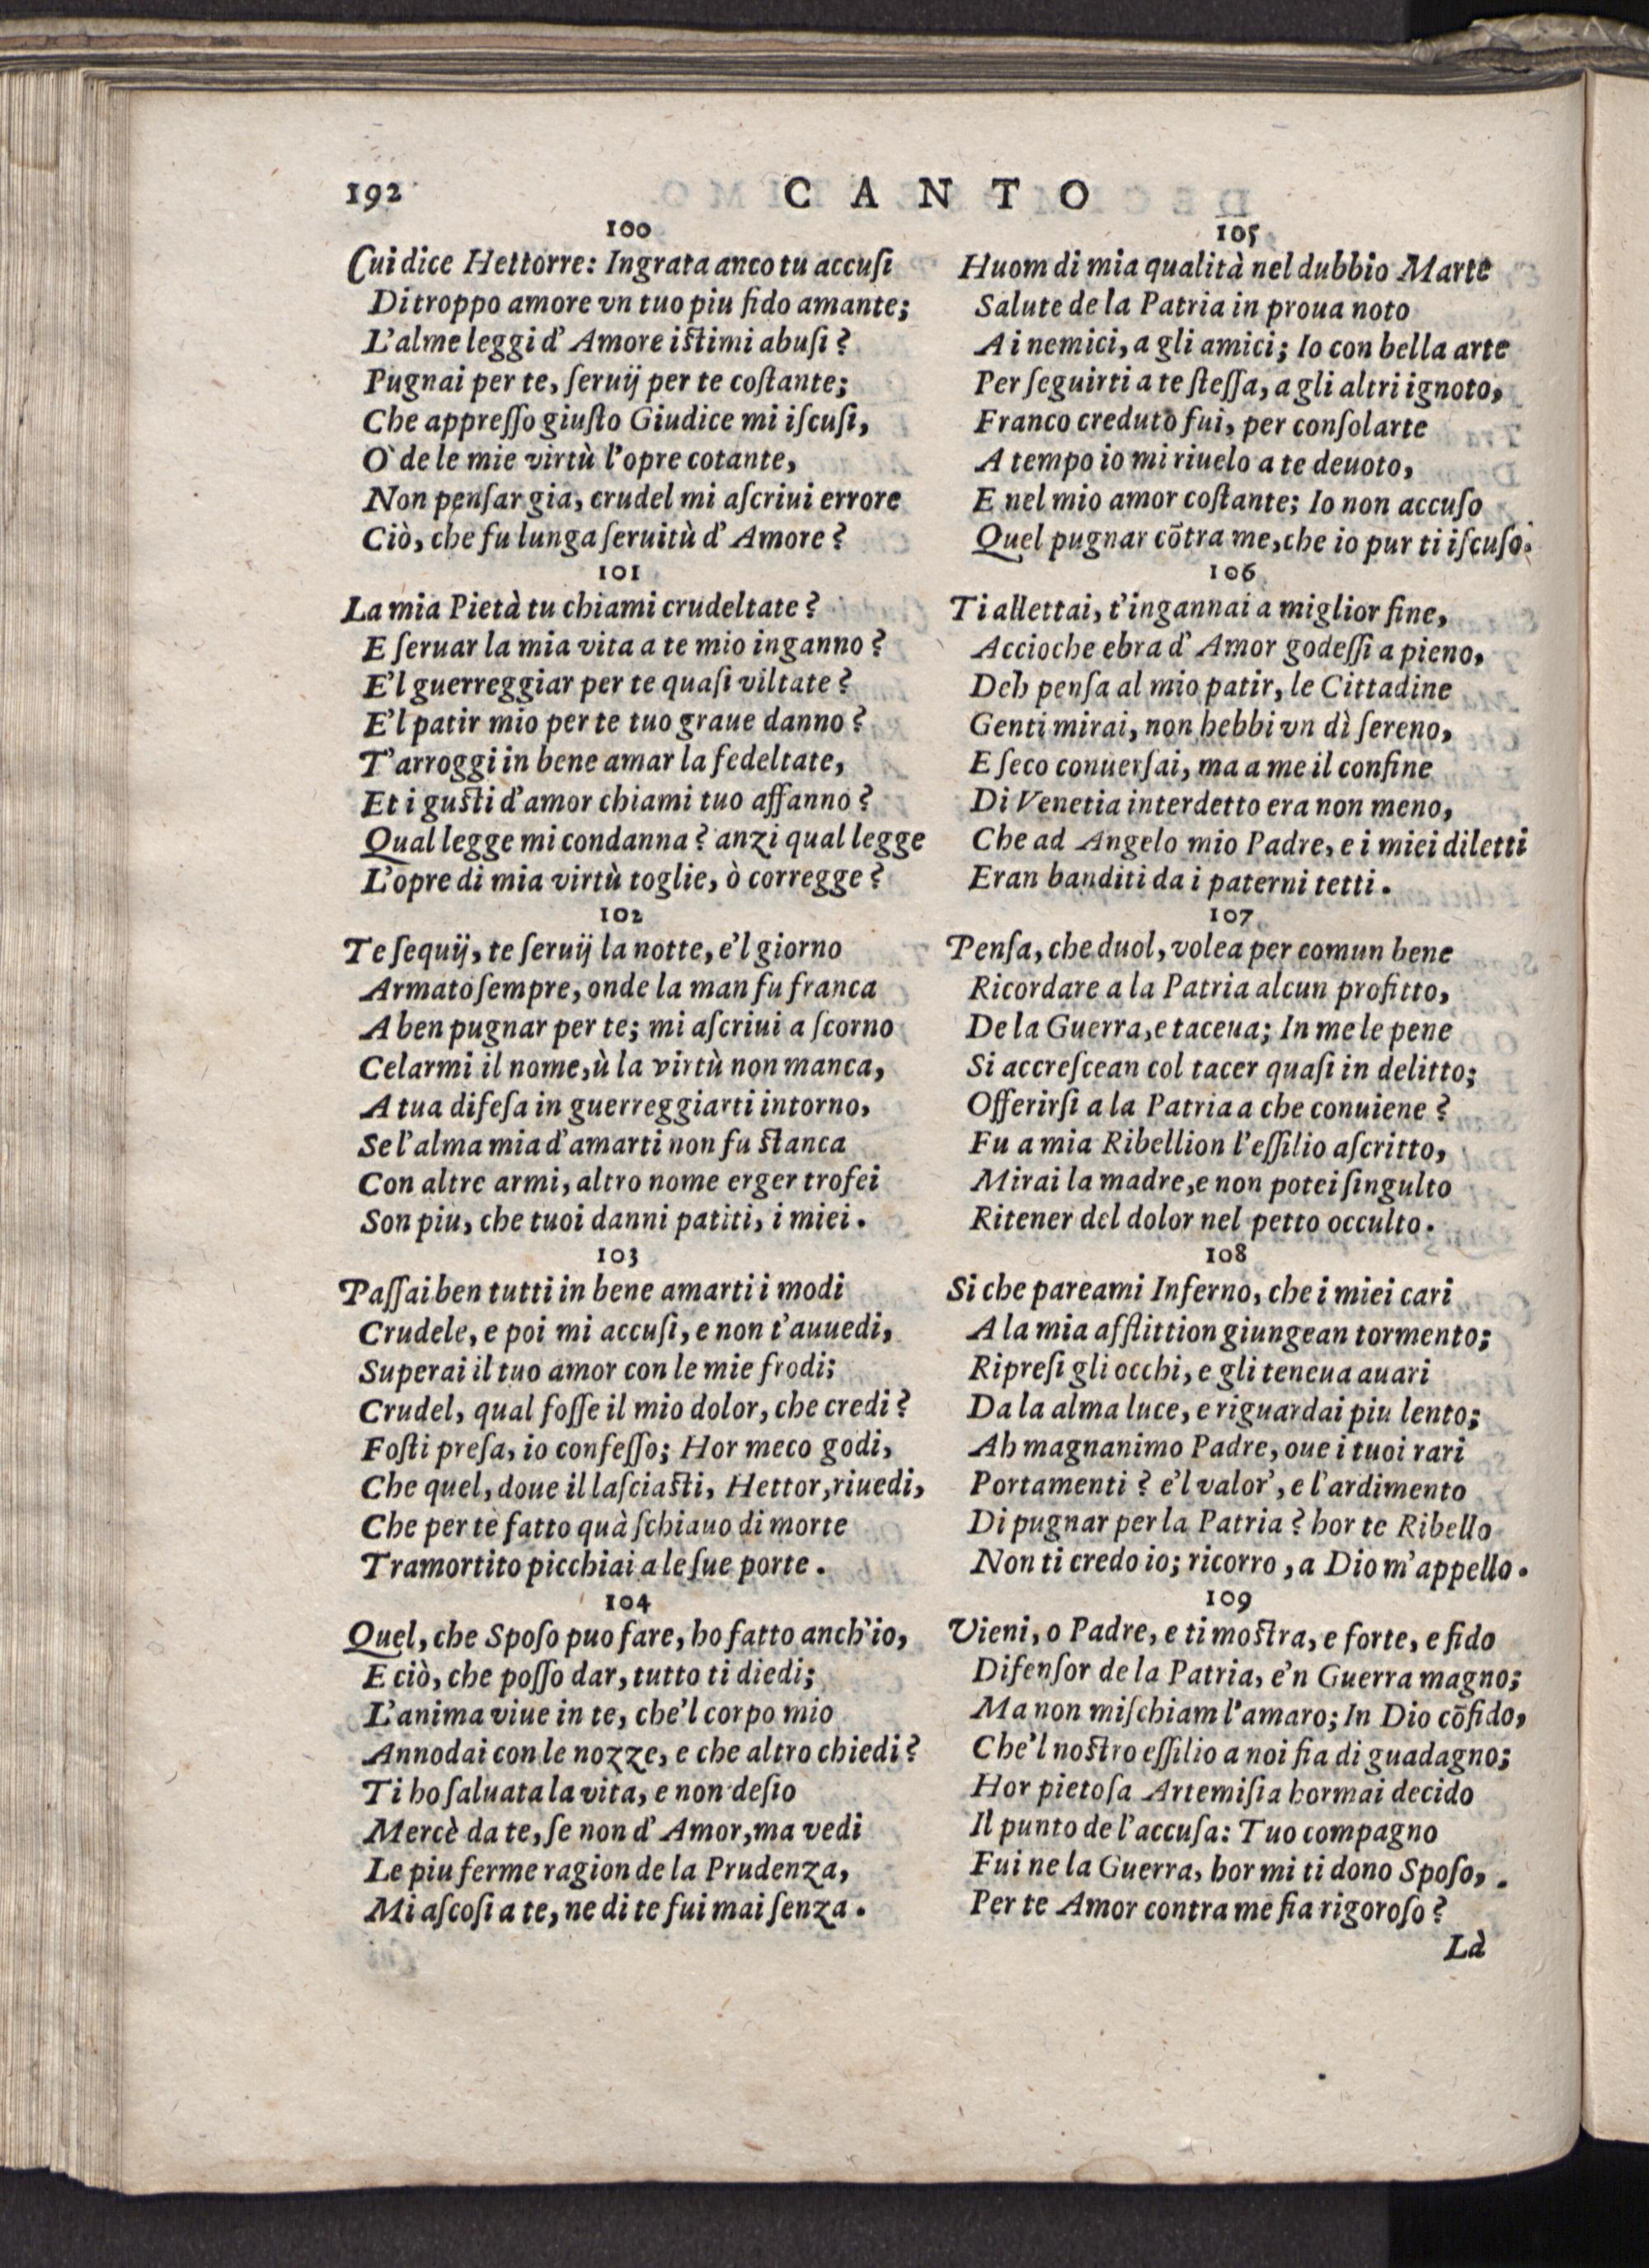 192
CANTO
100
Cui dice Hettorre: Ingrata anco tu accuſi
Di troppo amore vn tuo piu fido amante;
L'alme leggi d'Amore iſtimi abuſi?
Pugnai per te, ſeruij per te coſtante;
Che appreſſo giuſto Giudice mi iſcuſi,
O' de le mie virtù l'opre cotante,
Non penſar gia, crudel mi aſcriui errore
Ciò, che fu lunga ſeruitù d'Amore?
101
La mia Pietà tu chiami crudeltate?
E ſeruar la mia vita a te mio inganno?
E'l guerreggiar per te quaſi viltate?
E'l patir mio per te tuo graue danno?
T'arroggi in bene amar la fedeltate,
Et i guſti d'amor chiami tuo affanno?
Qual legge mi condanna? anzi qual legge
L'opre di mia virtù toglie, ò corregge?
102
Te ſequij, te ſeruij la notte, e'l giorno
Armato ſempre, onde la man fu franca
A ben pugnar per te; mi aſcriui a ſcorno
Celarmi il nome, ù la virtù non manca,
A tua difeſa in guerreggiarti intorno,
Se l'alma mia d'amarti non fu ſtanca
Con altre armi, altro nome erger trofei
Son piu, che tuoi danni patiti, i miei.
103
Paſſai ben tutti in bene amarti i modi
Crudele, e poi mi accuſi, e non t'auuedi,
Superai il tuo amor con le mie frodi;
Crudel, qual foſſe il mio dolor, che credi?
Foſti preſa, io confeſſo; Hor meco godi,
Che quel, doue il laſciaſti, Hettor, riuedi,
Che per te fatto quà ſchiauo di morte
Tramortito picchiai a le ſue porte.
104
Quel, che Spoſo puo fare, ho fatto anch'io,
E ciò, che poſſo dar, tutto ti diedi;
L'anima viue in te, che'l corpo mio
Annodai con le nozze, e che altro chiedi?
Ti ho ſaluata la vita, e non deſio
Mercè da te, ſe non d'Amor, ma vedi
Le piu ferme ragion de la Prudenza,
Mi aſcoſi a te, ne di te fui mai ſenza.
105
Huom di mia qualità nel dubbio Marte
Salute de la Patria in proua noto
A i nemici, a gli amici; Io con bella arte
Per ſeguirti a te ſteſſa, a gli altri ignoto,
Franco creduto fui, per conſolarte
A tempo io mi riuelo a te deuoto,
E nel mio amor coſtante; Io non accuſo
Quel pugnar cõtra me, che io pur ti iſcuſo.
106
Ti allettai, t'ingannai a miglior fine,
Accioche ebra d'Amor godeſſi a pieno,
Deh penſa al mio patir, le Cittadine
Genti mirai, non hebbi vn dì ſereno,
E ſeco conuerſai, ma a me il confine
Di Venetia interdetto era non meno,
Che ad Angelo mio Padre, e i miei diletti
Eran banditi da i paterni tetti.
107
Penſa, che duol, volea per comun bene
Ricordare a la Patria alcun profitto,
De la Guerra, e taceua; In me le pene
Si accreſcean col tacer quaſi in delitto;
Offerirſi a la Patria a che conuiene?
Fu a mia Ribellion l'eſſilio aſcritto,
Mirai la madre, e non potei ſingulto
Ritener del dolor nel petto occulto.
108
Si che pareami Inferno, che i miei cari
A la mia afflittion giungean tormento;
Ripreſi gli occhi, e gli teneua auari
Da la alma luce, e riguardai piu lento;
Ah magnanimo Padre, oue i tuoi rari
Portamenti? e'l valor', e l'ardimento
Di pugnar per la Patria? hor te Ribello
Non ti credo io; ricorro, a Dio m'appello.
109
Vieni, o Padre, e ti moſtra, e forte, e fido
Difenſor de la Patria, e'n Guerra magno;
Ma non miſchiam l'amaro; In Dio cõfido,
Che'l noſtro eſſilio a noi fia di guadagno;
Hor pietoſa Artemiſia hormai decido
Il punto de l'accuſa: Tuo compagno
Fui ne la Guerra, hor mi ti dono Spoſo,.
Per te Amor contra me fia rigoroſo?
Là